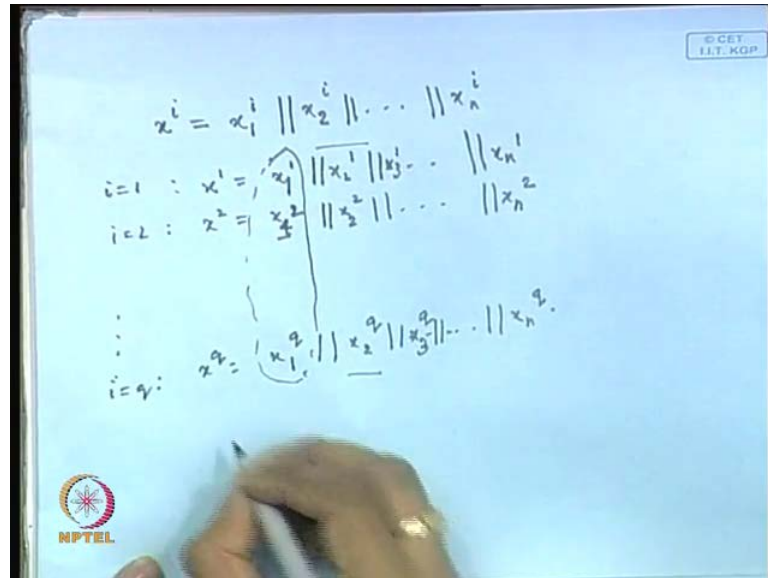 © CET
I.I.T. KGP
xⁱ = x₁ⁱ || x₂ⁱ || . . . || xₙⁱ
i=1 : x¹ = x₁¹ || x₂¹ || x₃¹ . . || xₙ¹
i=2 : x² = x₁² || x₂² || . . . || xₙ²
i=q : x^q = x₁^q || x₂^q || x₃^q || . . || xₙ^q .
NPTEL